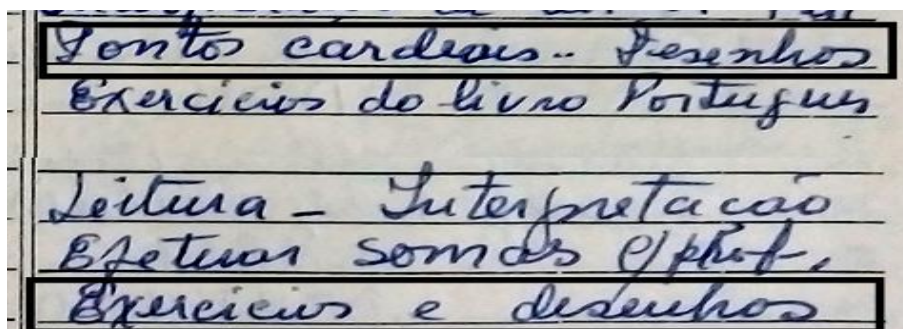 Pontos cardeais.. Desenhos
Exercicios do livro Portugues
Leitura - Interpretacão
Efetuar somas c/ prof.
Exercicios e desenhos